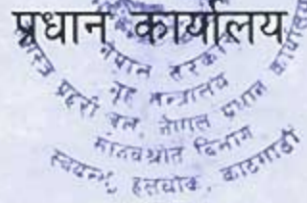 प्रधान कार्यालय
नेपाल सरकार
गृह मन्त्रालय
सशस्त्र प्रहरी बल, नेपाल प्रधान कार्यालय
मानवश्रोत विभाग
स्वयम्भू, हलचोक, काठमाडौं